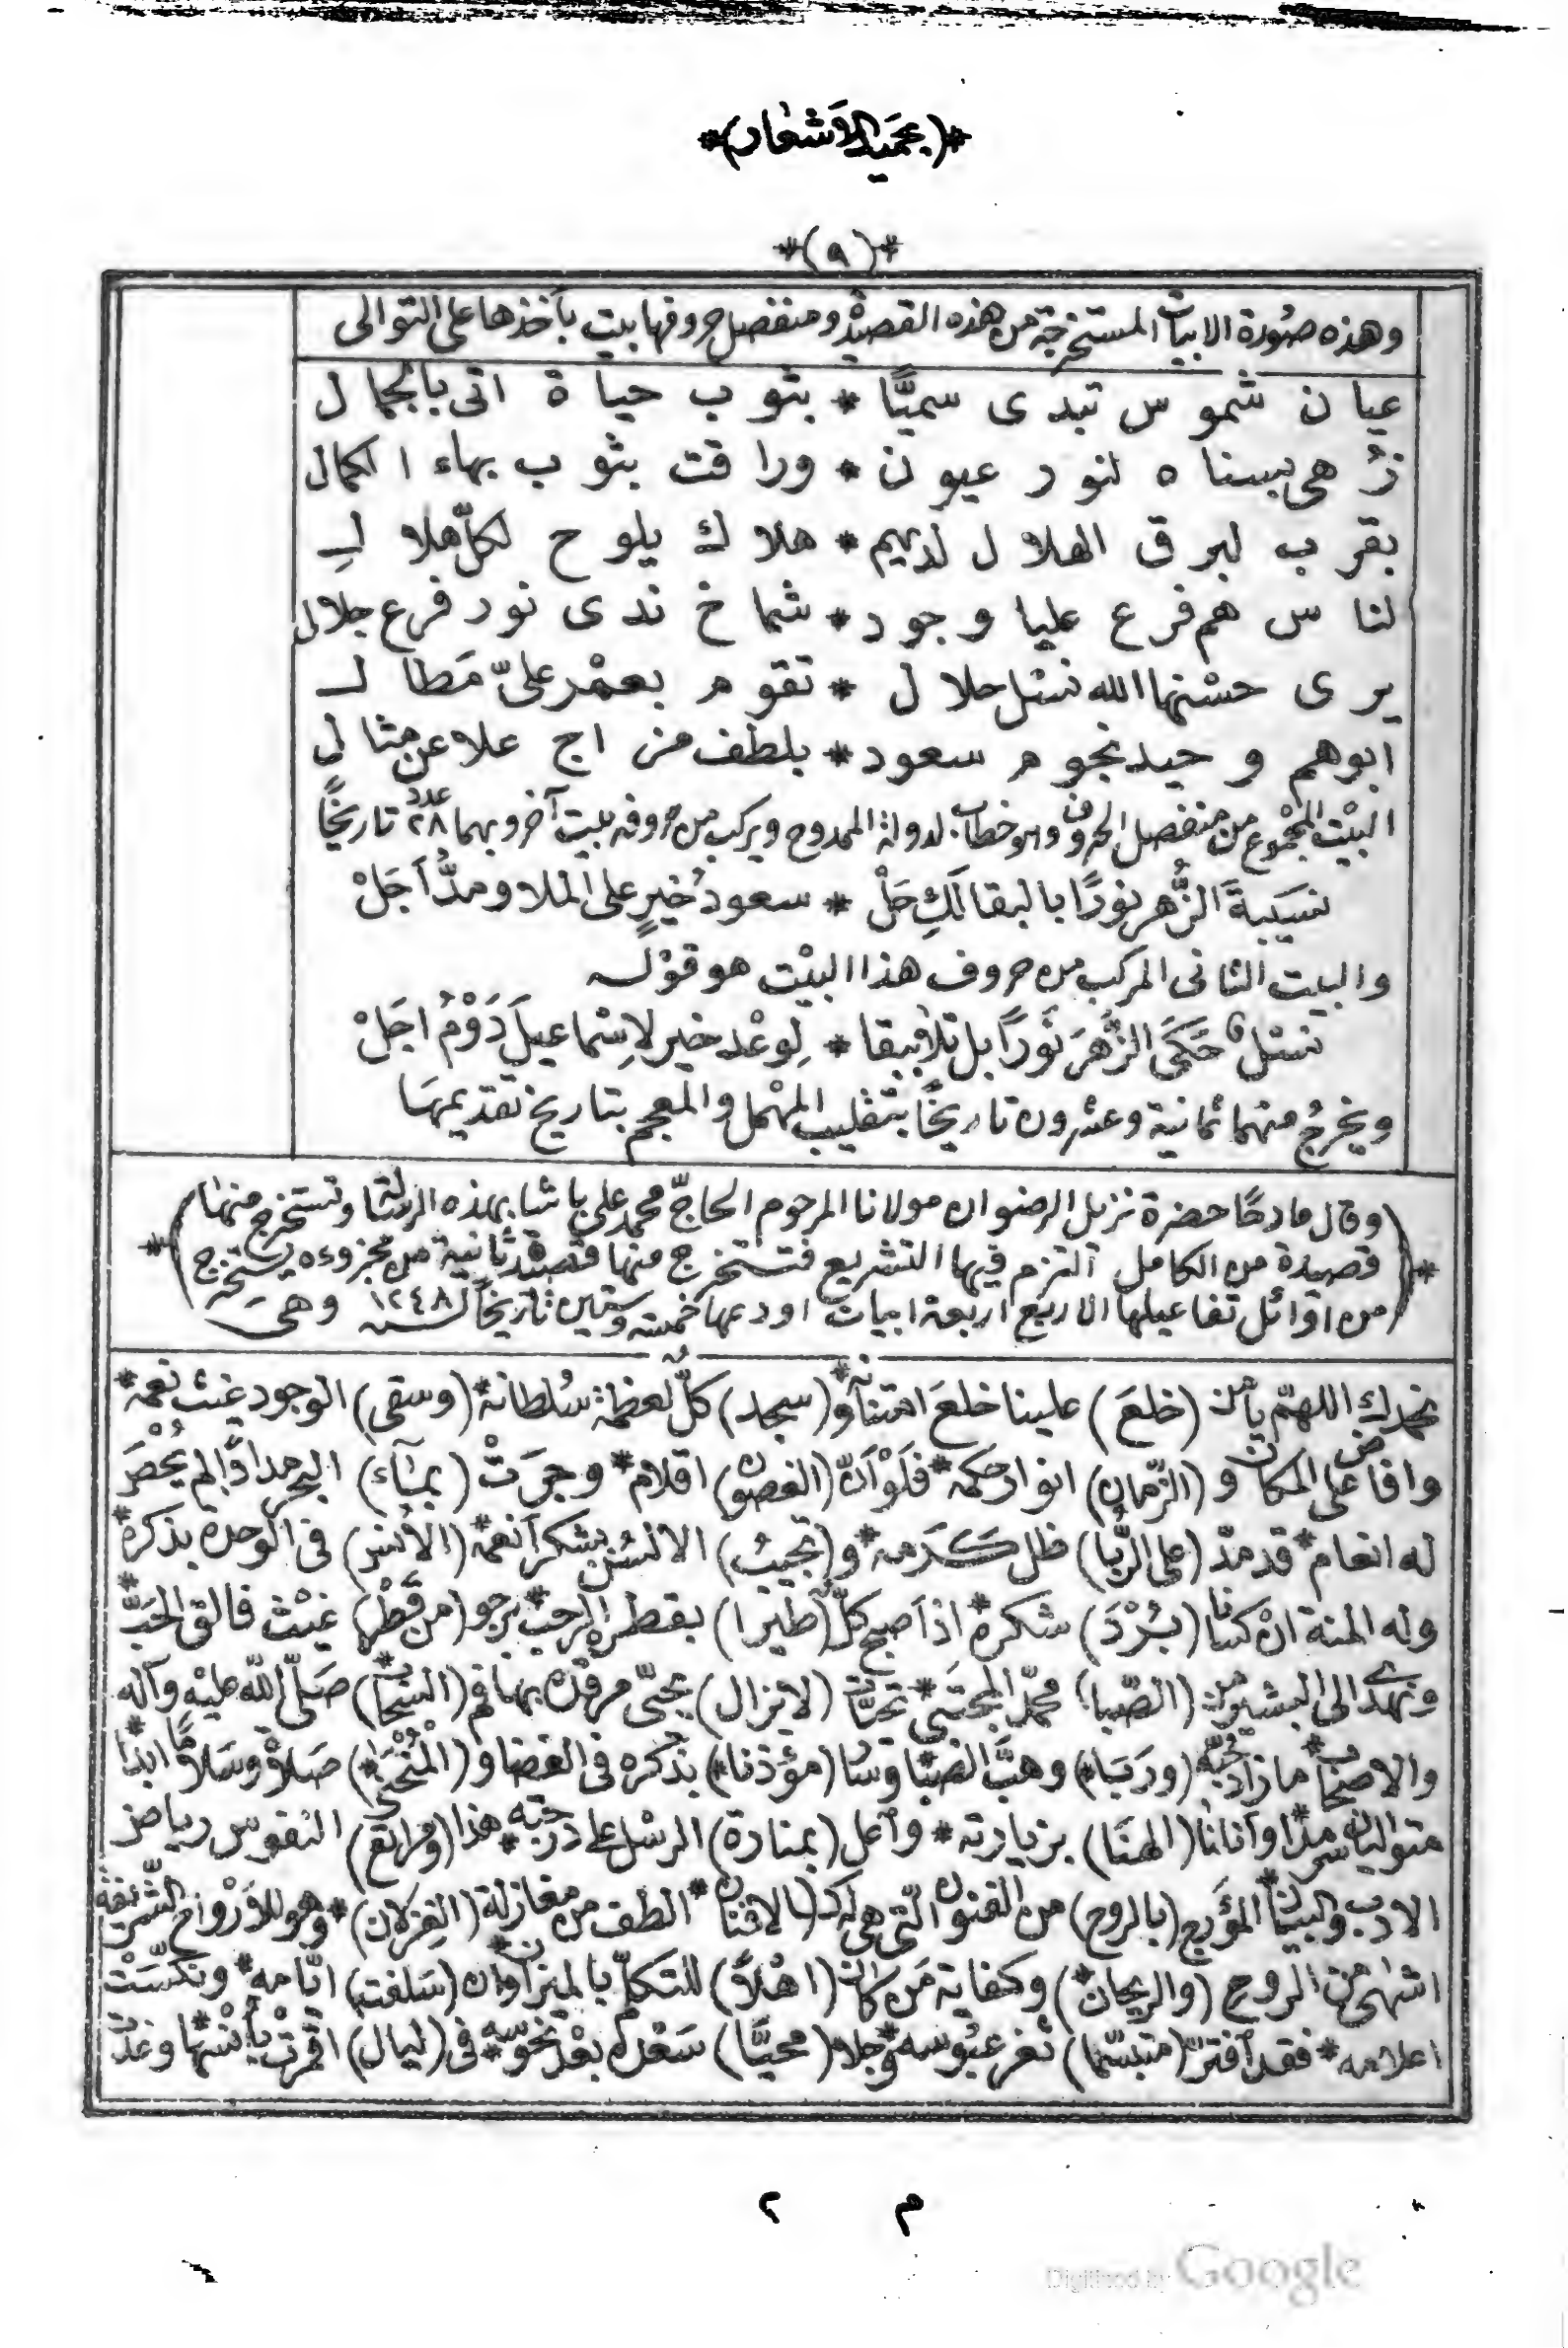 *(عجميد الاشعار)*
*(٩)*
وهذه صورة الابيات المستخرجة من هذه القصيدة ومنفصل حروفها بيت يأخذها على التوالى
عيا ن شمو س تبد ى سميًّا * بثو ب حيا ة اتى بالجما ل
زُ هى بسنا ه لنو ر عيو ن * ورا قت بثو ب بهاء ا لكمال
بقر ب لبر ق الهلا ل لديهم * هلا ك يلو ح لكلّ هلا لِ
لنا س هم فر ع عليا و جو د * شما خ ند ى نو ر فرع جلال
ير ى حسنها الله نسل حلا ل * تقو م بعمْر علىّ مَطا ل
ابوهم و حيد نجو م سعود * بلطف من اج علا عن مثا ل
البيْت المجْموع من منفصل الحروف وهو خطاب لدولة الممدوح ويركب من حروفه بيت آخر وبهما عدد ٢٨ تاريخًا
نسَيبةَ الزُّهر نورًا بالبقا لَكِ حَلْ * سعودُ خيرٍ على الملا ومدُّ اَجَلْ
والبيت الثانى المركب من حروف هذا البيْت هو قوْل
نسْل حَكَى الزُّهرَ نَورًا بل تلا فبقا * لِوعْد خير لاِسْماعيلَ دَوْمُ اجَلْ
ويخرجُ منهما ثمانية وعشرون تاريخًا بتقليب المهْمل والمعجم بتاريخ تقديمهَا
*(وقال مادحًا حضرة نزيل الرضوان مولانا المرحوم الحاجّ محمد على باشا بهذه الرسالة وتستخرج منها
قصيدة من الكامل التزم فيها التشريع فتستخرج منها قصيدة ثانية من مجزوءه يستخرج
من اوائل تفاعيلها الاربع اربعة ابيات اودعها خمسة وستين تاريخًا لسنة ١٢٤٨ وهى)*
نحمدك اللهمّ يا من (خلعَ) علينا خلعَ امتنانه * و(سجد) كلّ لعظمة سُلطانه * (وسقى) الوجود غيث نعمه *
وافاض على المكان و (الزّمان) انوار حكمه * فلَوْ اَنّ (الغصون) اقلام * وجرَتْ (بمآء) البحر مدادًا لم يُحْصَر
له انعام * قد مدّ (على الرُّبا) ظل كَرَمه * و(تجيبُ) الالسُن بشكر اَنعمه * (الاُنس) فى الوحدة بذكره *
وله المنة ان كسانا (بُرْدَ) شكره * اذ اَصبح كلّ (طيرا) بقطره الرحب * يرجو (من قَطْر) غيْث فالق الحَبّ *
ونهدى الى البشير من (الصّبا) محمّد المجتَبَى * تحيّات (لا تزال) بحيّى مرقده بها فم (السّحاب) * صَلّى اللّه عليْه وآله
والاصحاب * ما زاد حُبّه (ورَبَا) * وهبَّ الصّبا وسُا (مؤذنا) بذكره فى الفضا و (المُنْحَنَى) * صَلاةً وسَلامًا ابدًا *
متواليان سرمدًا * وآنانا (الهنَا) بزيارته * وآعل (بمنارة) الرسْل على درجته * هذا (ومراتع) النفوس رياض
الادب * والبيان المؤَرج (بالروح) من الفنون التّى هى لدّ (بالافنان) * الطف من مغازلة (الغِزلان) * وهو للاَرْواح الشريفة
اشهى من الروح (والريحان) * وكفاية مَن كان (اهْلاً) للتكلّم بالميزان * وان (سَلفت) ايّامه * ونكسَتْ
اعلامه * فقد اَفترّ (متبسّما) ثغر عبُوسه * وجلا (محيًّا) سَعْده بعْد نحوسه * فى (ليال) اقمرتْ بأنسْها * وغدت
م ٢
Digitized by Google